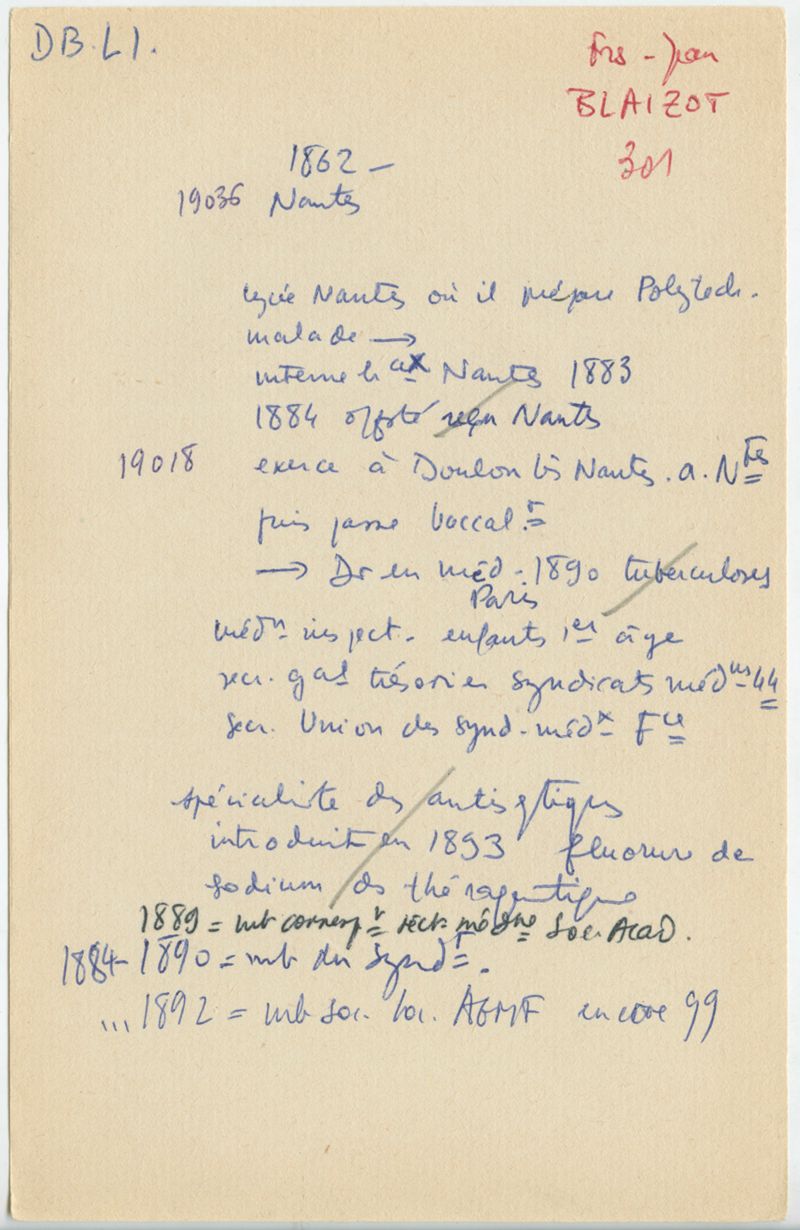 DB.LI.
Frs - Jean
BLAIZOT
301
1862 -
19036 Nantes
lycée Nantes où il prépare Polytech.
malade →
interne hax Nantes 1883
1884 offté reçu Nantes
19018 exerce à Doulon lès Nantes. a. Ntes
puis passe baccal.r
→ Dr en méd. 1890 tuberculoses
Paris
médn inspect. enfants 1er âge
secr. gal trésorier syndicats médns 44
Secr. Union des synd. médx Fce
spécialiste des antiseptiques
introduit en 1893 fluorure de
sodium ds thérapeutique
1889 = mb corresp.r sect. médne Soc. Acad.
1884-1890 = mb du Syndt.
... 1892 = mb soc. loc. AGMF encore 99